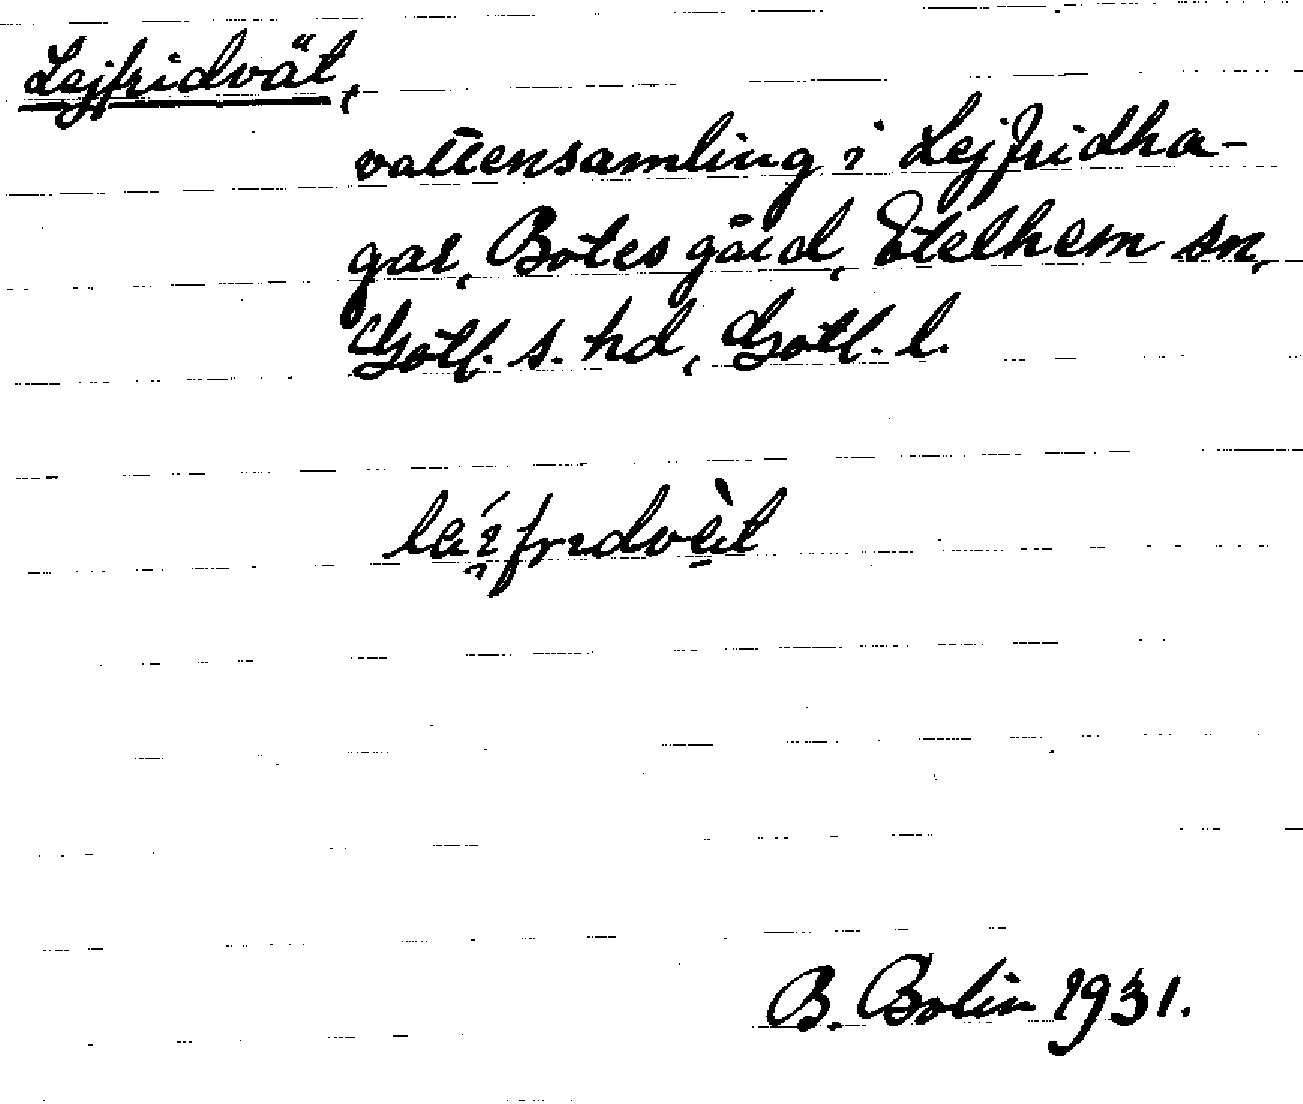 Lejfridvät,
vattensamling i Lejfridha-
gar, Botes gård, Etelhem sn,
Gotl. s. hd, Gotl. l.
B. Bolin 1931.